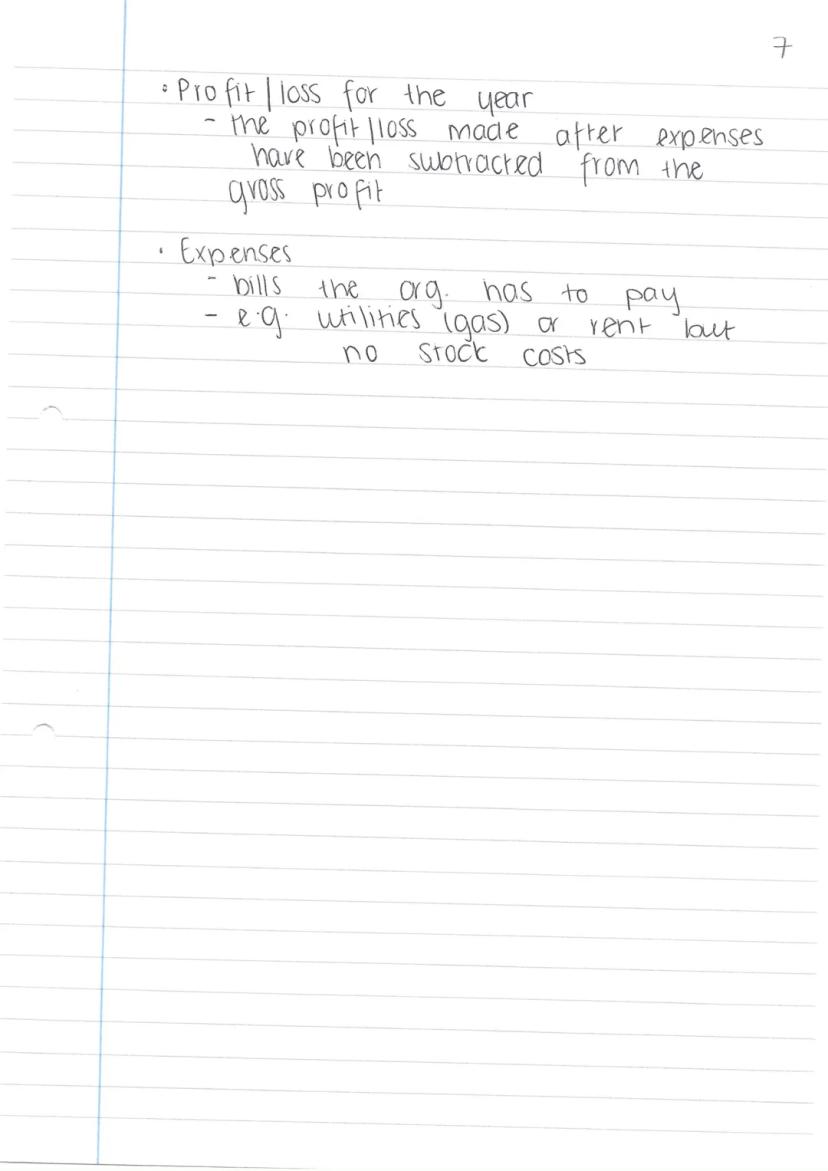 7
• Profit/loss for the year
- the profit/loss made after expenses
have been subtracted from the
gross profit
• Expenses
- bills the org. has to pay
- e.g. utilities (gas) or rent but
no stock costs